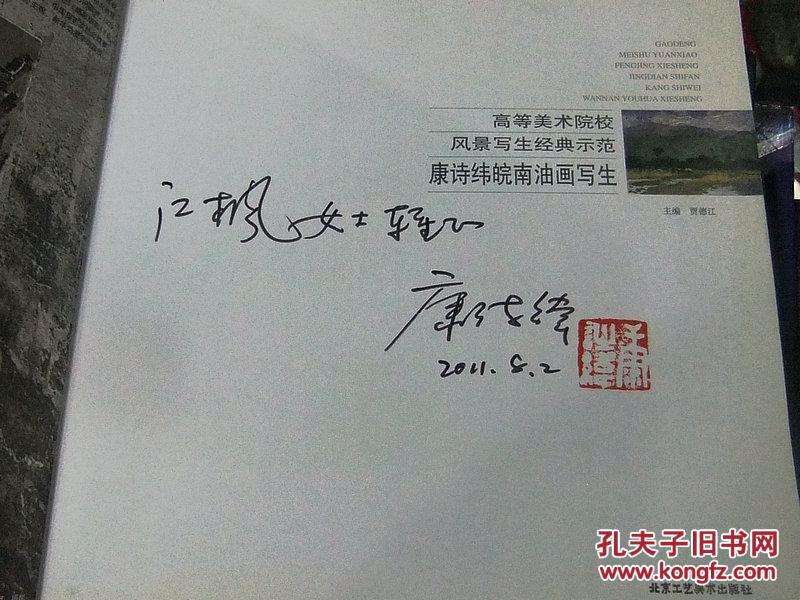 GAODENG
MEISHU YUANXIAO
FENGJING XIESHENG
JINGDIAN SHIFAN
KANG SHIWEI
WANNAN YOUHUA XIESHENG
高等美术院校
风景写生经典示范
康诗纬皖南油画写生
主编 贾德江
江枫女士雅正
康诗纬
2011.8.2
北京工艺美术出版社
孔夫子旧书网
www.kongfz.com